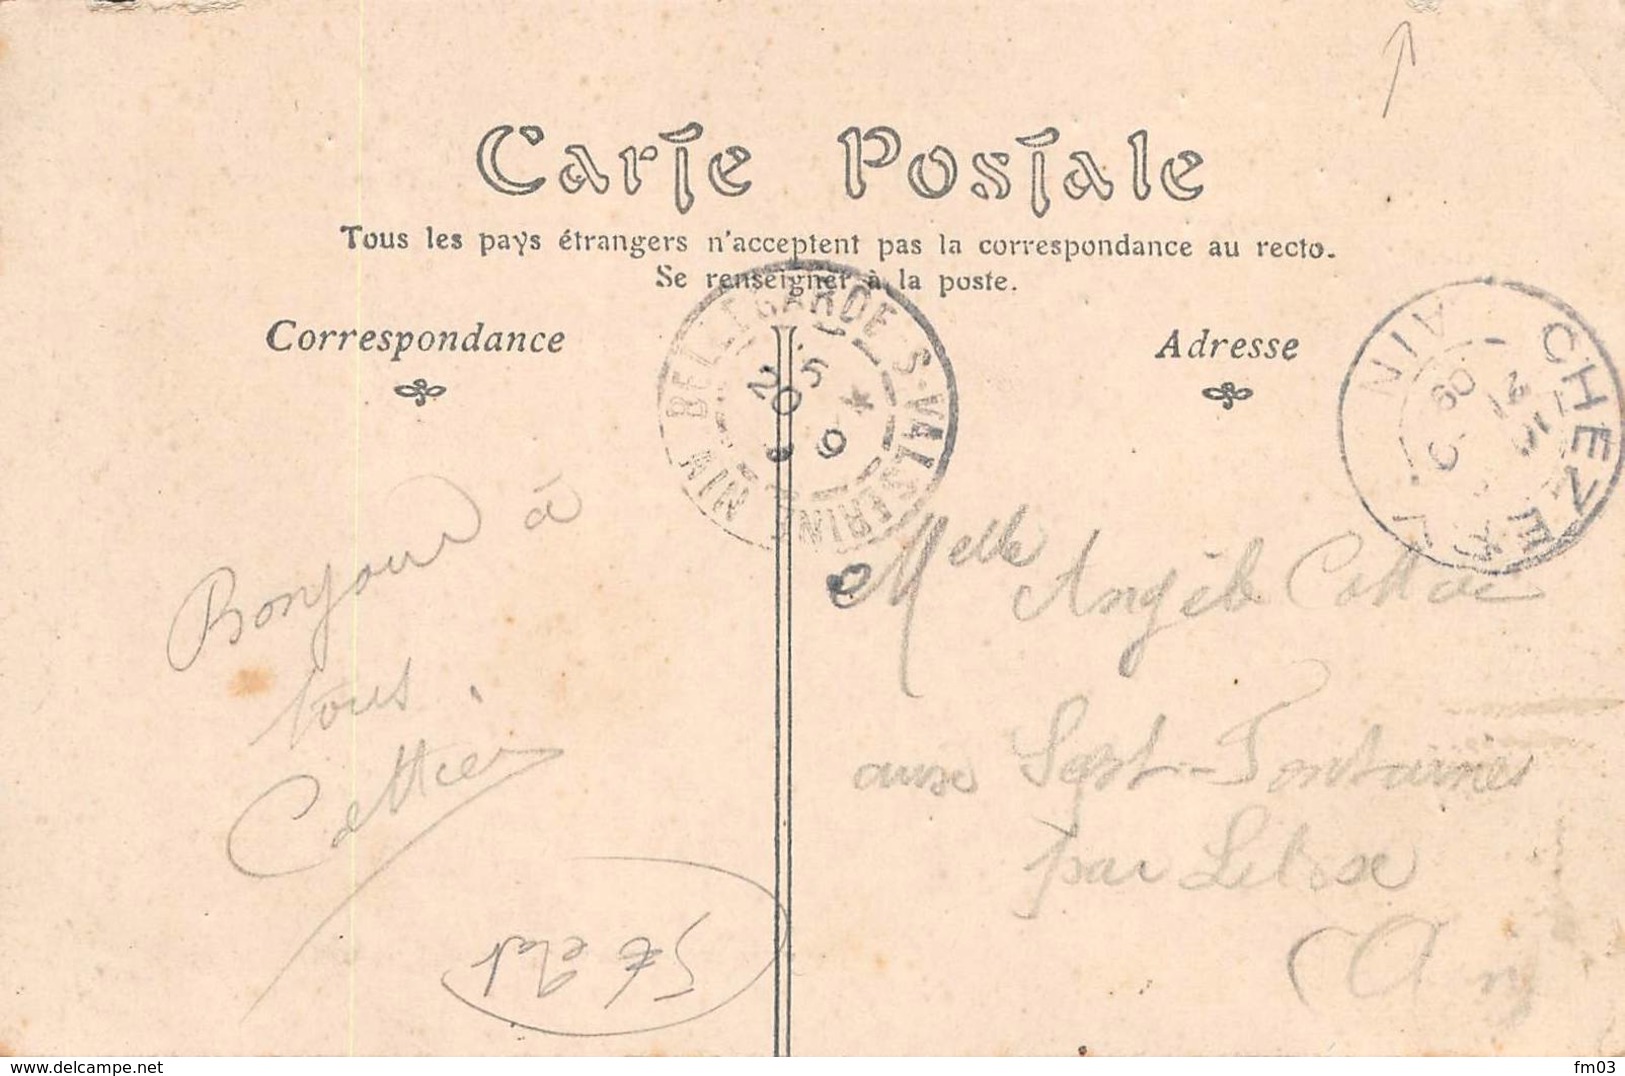 Carte Postale
Tous les pays étrangers n'acceptent pas la correspondance au recto.
Se renseigner à la poste.
Correspondance
Adresse
BELLEGARDE-S-VALSERINE
15
20
9
CHEZERY
AIN
21
09
Bonjour à
tous
Cottier
Melle Angèle Cottier
aux Sept-Fontaines
par
(Ain)
état
delcampe.net
fm03